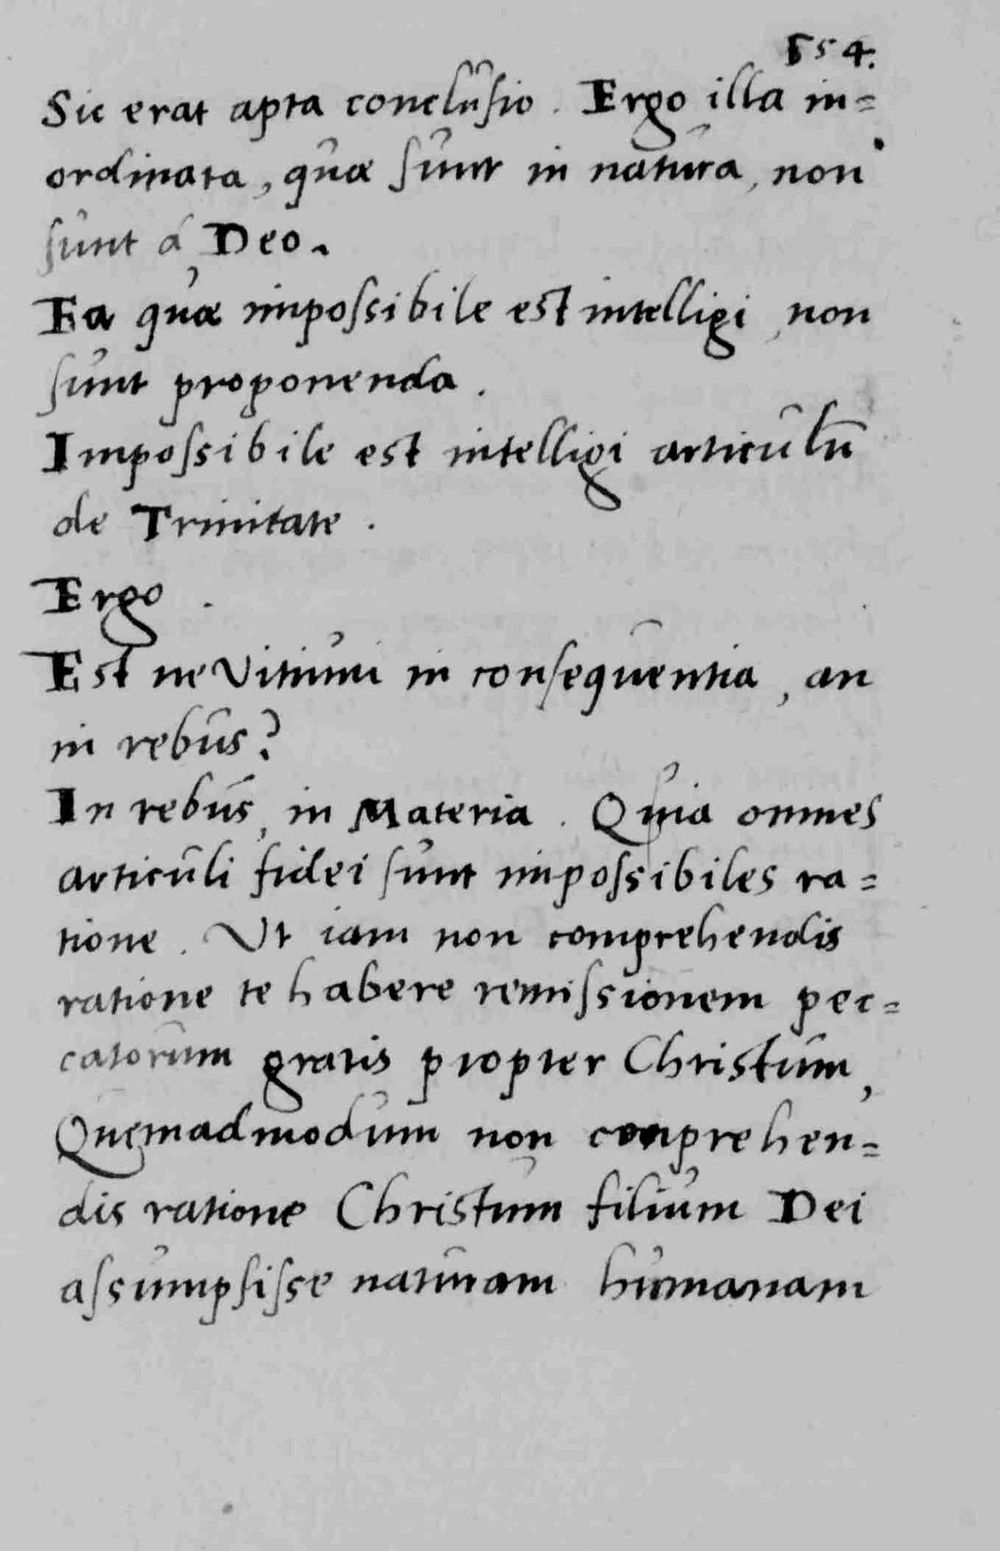 854.
Sic erat apta conclusio. Ergo illa in=
ordinata, quæ sunt in natura, non
sunt á Deo.
Ea quæ impossibile est intelligi, non
sunt proponenda.
Impossibile est intelligi articulū
de Trinitate.
Ergo.
Est ne Vitium in consequentia, an
in rebus?
In rebus, in Materia. Quia omnes
articuli fidei sunt impossibiles ra=
tione. Vt iam non comprehendis
ratione te habere remissionem pec=
catorum gratis propter Christum,
Quemadmodum non comprehen=
dis ratione Christum filium Dei
assumpsisse naturam humanam